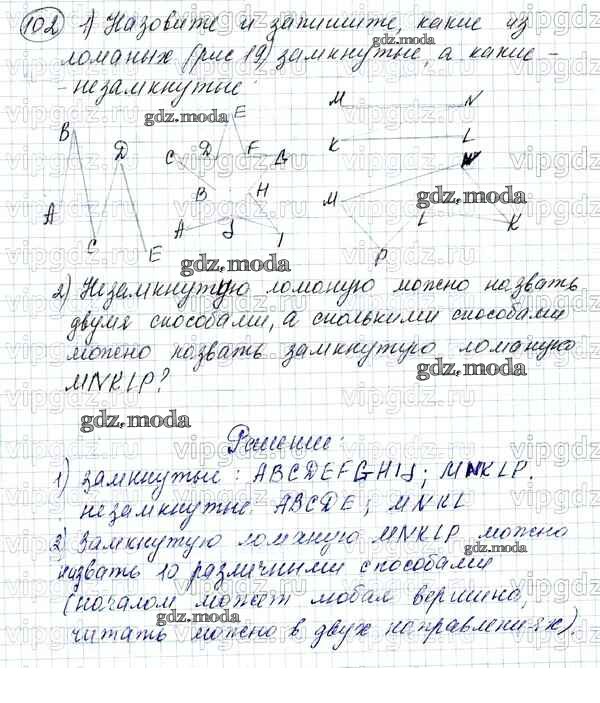 102 1) Назовите и запишите, какие из
ломаных (рис 19) замкнутые, а какие -
- незамкнутые:
B D C D E F G B H A J I A C E
M N K L M N L K P
2) Незамкнутую ломаную можно назвать
двумя способами, а сколькими способами
можно назвать замкнутую ломаную
MNKLP?
Решение:
1) замкнутые: ABCDEFGHIJ; MNKLP.
незамкнутые: ABCDE; MNKL
2) Замкнутую ломаную MNKLP можно
назвать 10 различными способами
(началом может любая вершина,
читать можно в двух направлениях).
gdz.moda
gdz.moda
gdz.moda
gdz.moda
gdz.moda
gdz.moda
gdz.moda
gdz.moda
gdz.moda
gdz.moda
vipgdz.ru